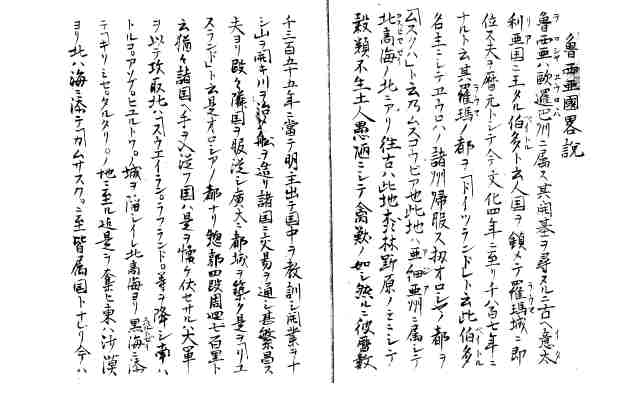 魯西亜國畧説
魯西亜ハ歐邏巴州ニ属ス其開基ヲ尋ヌルニ古ヘ意太
利亜国ニ王タル伯多ト云人国ヲ鎮メテ羅瑪城ニ即
位ス夫ヲ暦元トシテ今文化四年ニ至リ千八百七年ニ
ナルト云其羅瑪ノ都ヲ「ドイツランド」ト云此伯多
名主ニシテヱウロハノ諸州帰服ス扨オロシアノ都ヲ
ムスクハト云乃ムスコウビア也此地ハ亜細亜州ニ属シテ
北高海ノ北ニアリ往古ハ此地林野原ノミニシテ
穀類不生土人愚陋ニシテ禽獣ノ如シ然ルニ彼暦数
千三百五十五年ニ當テ明主出テ国中ヲ教訓シ開業ヲ十
シ山ヲ開キ川ヲ治メ舩ヲ造リ諸国ニ交易ヲ通シ甚繁昌ス
夫ヨリ段々隣国ヲ服従シ廣大ニ都城ヲ築ク是ヲ
スランド」ト云是オロシアノ都ナリ惣郭四段周四七百里ト
云猶々諸国ヘ手ヲ入従フ国ハ是ヲ懐ケ伏セサルハ大軍
ヲ以テ攻取北ハスウエイラン。ラフランド。等ヲ降シ南ハ
トルコ。アゾプ。ヒユルトワ。ノ城ヲ陥シイレ北高海ヨリ黒海ニ添
テ「キリシセ」タルタリ。ノ地ニ至ル迄是ヲ奪ヒ東ハ沙漠
ヨリ北ハ海ニ添テ「カムサスク」ニ至皆属国トナレリ今ハ